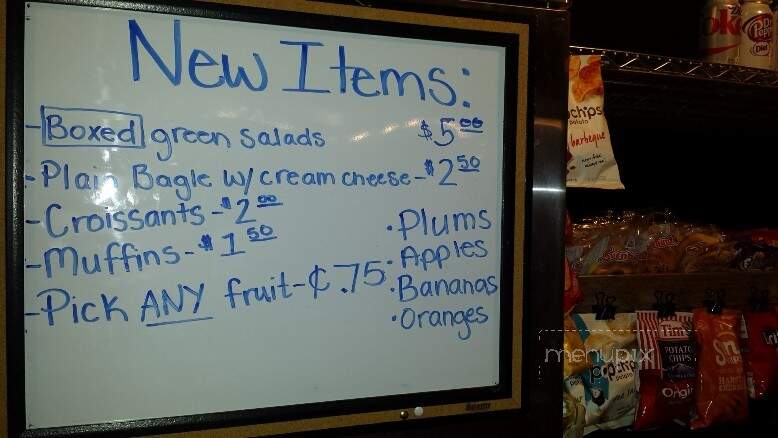 New Items:
-Boxed green salads $5.00
-Plain Bagle w/ cream cheese-$2.50
-Croissants-$2.00
-Muffins-$1.50
-Pick ANY fruit-¢.75
·Plums
·Apples
·Bananas
·Oranges
Diet
chips
potato
barbeque
popchips
Tim's
POTATO
CHIPS
menupix